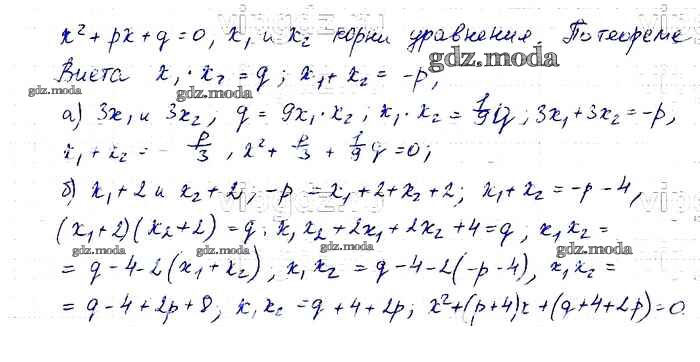 x² + px + q = 0, x₁ и x₂ корни уравнения. По теореме
Виета x₁ · x₂ = q ; x₁ + x₂ = -p,
а) 3x₁ и 3x₂, q = 9x₁ · x₂ ; x₁ · x₂ = 1/9 q ; 3x₁ + 3x₂ = -p,
x₁ + x₂ = - p/3 , x² + p/3 + 1/9 q = 0;
б) x₁ + 2 и x₂ + 2; -p = x₁ + 2 + x₂ + 2; x₁ + x₂ = -p - 4,
(x₁ + 2)(x₂ + 2) = q. x₁ x₂ + 2x₁ + 2x₂ + 4 = q, x₁ x₂ =
= q - 4 - 2(x₁ + x₂), x₁ x₂ = q - 4 - 2(-p - 4), x₁ x₂ =
= q - 4 + 2p + 8; x₁ x₂ = q + 4 + 2p; x² + (p + 4)x + (q + 4 + 2p) = 0
gdz.moda
gdz.moda
gdz.moda
gdz.moda
gdz.moda
gdz.moda
gdz.moda
gdz.moda